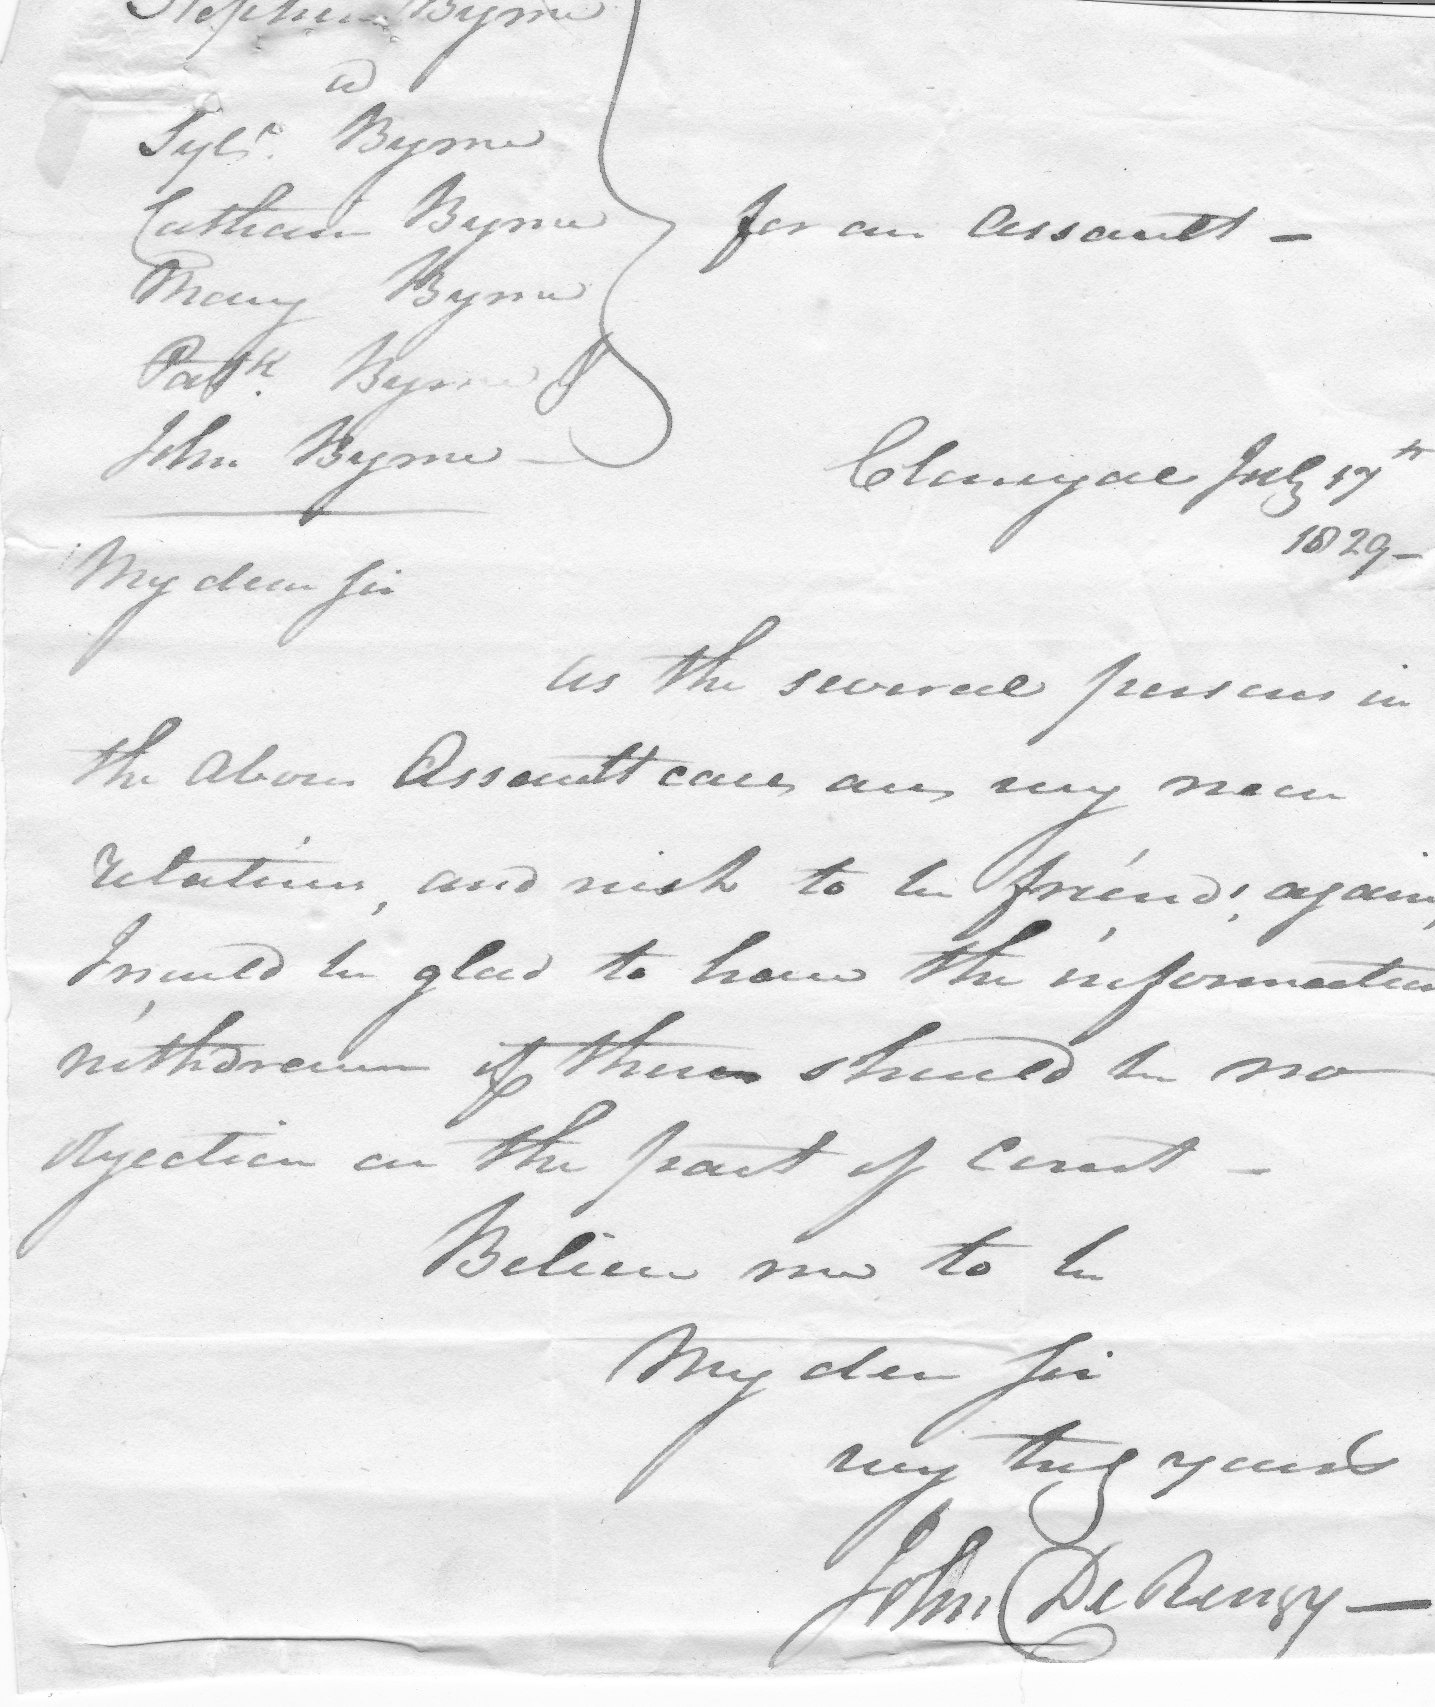 Stephen Byrne
v
Sylr. Byrne
Catharin Byrne
Mary Byrne
Patk. Byrne
John Byrne
for an Assault -
Clonegal July 17th
1829-
My dear Sir
as the several persons in
the above Assault case, are, my near
relations, and wish to be friends again,
I would be glad to have the information
withdrawn if there should be no
objection on the part of Court -
Believe me to be
My dear Sir
very truly yours
John De Renzy -